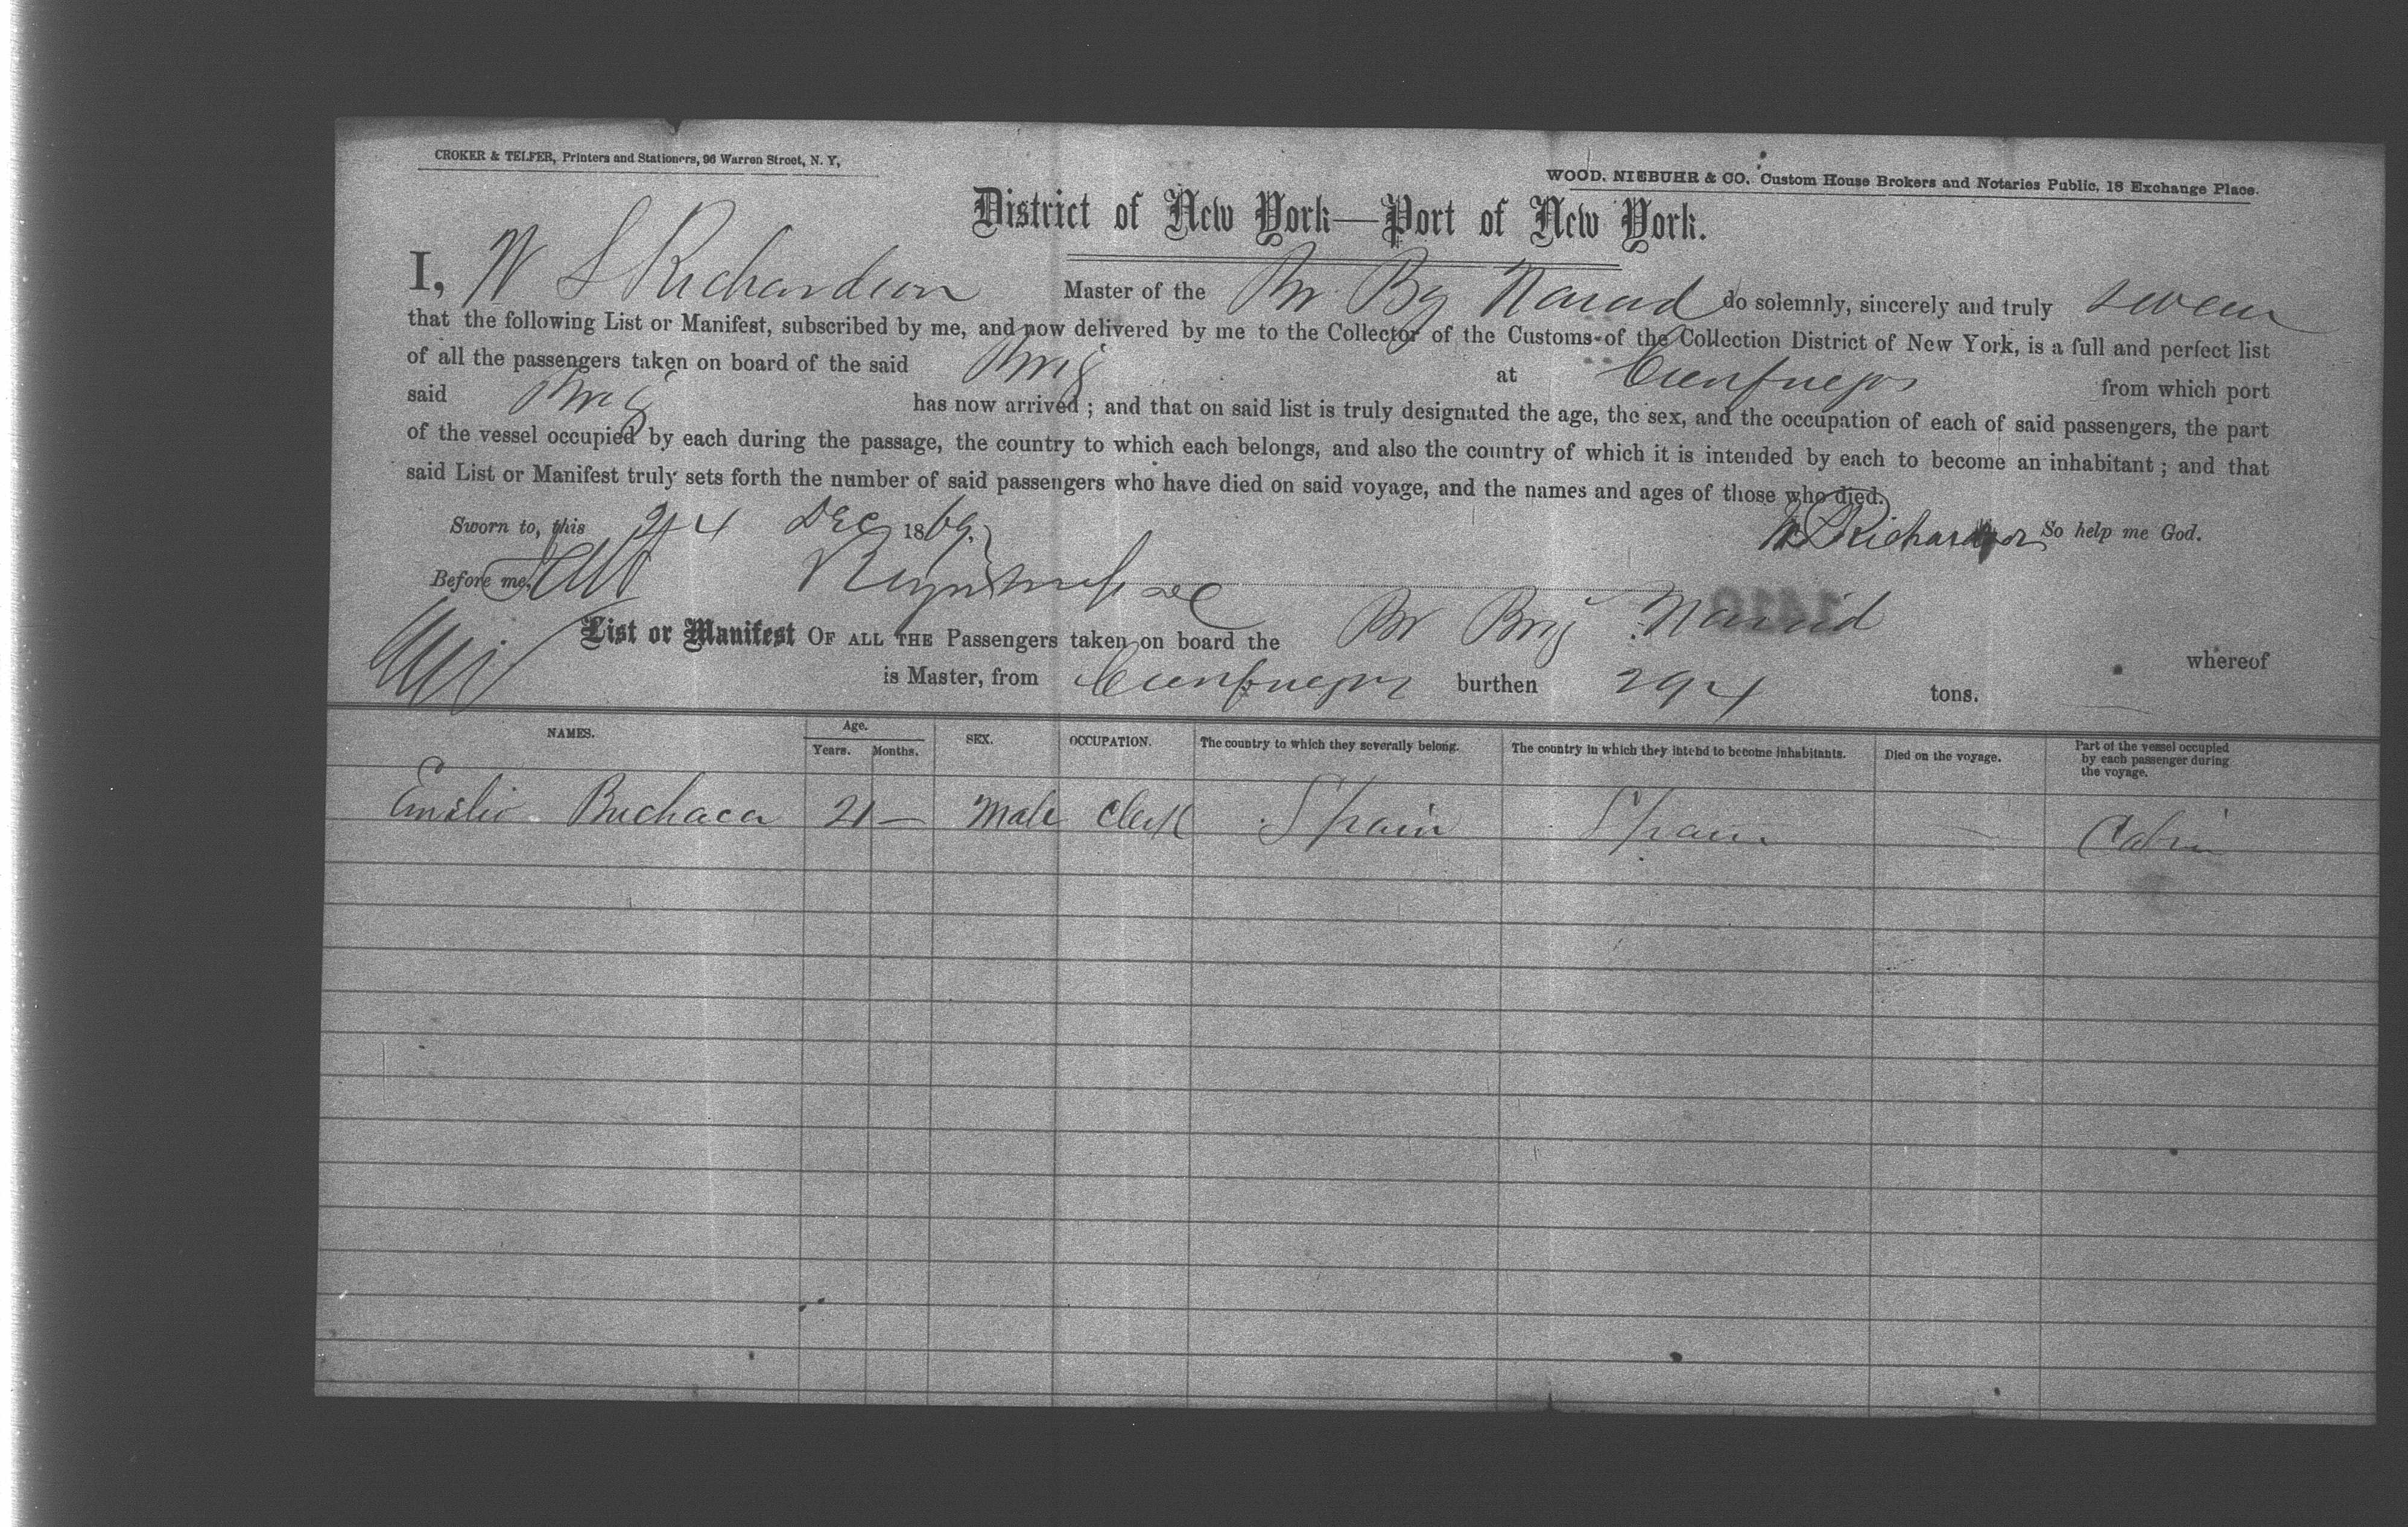 CROKER & TELFER, Printers and Stationers, 96 Warren Street, N. Y,
WOOD, NIEBUHR & CO. Custom House Brokers and Notaries Public, 18 Exchange Place.
District of New York—Port of New York.
I, W S Richardson Master of the Br Bg do solemnly, sincerely and truly swear
that the following List or Manifest, subscribed by me, and now delivered by me to the Collector of the Customs of the Collection District of New York, is a full and perfect list
of all the passengers taken on board of the said Brig at Cienfuegos from which port
said Brig has now arrived; and that on said list is truly designated the age, the sex, and the occupation of each of said passengers, the part
of the vessel occupied by each during the passage, the country to which each belongs, and also the country of which it is intended by each to become an inhabitant; and that
said List or Manifest truly sets forth the number of said passengers who have died on said voyage, and the names and ages of those who died.
Sworn to, this 24 Dec 1869. W S Richardson So help me God.
Before me,
List or Manifest OF ALL THE Passengers taken on board the Br Brig whereof
is Master, from Cienfuegos burthen 294 tons.
NAMES. Age. Years. Months. SEX. OCCUPATION. The country to which they severally belong. The country in which they intend to become inhabitants. Died on the voyage. Part of the vessel occupied by each passenger during the voyage.
Emilio Buchaca 21 — Male Clerk Spain Spain Cabin